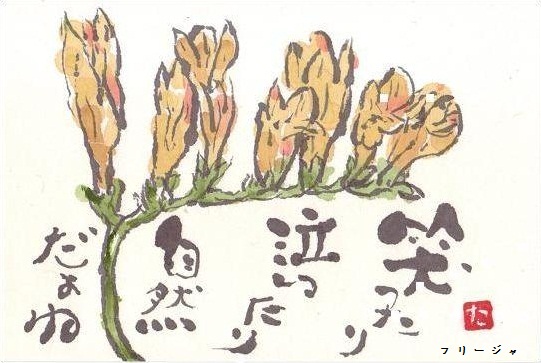 笑ったり
泣いたり
自然
だよね
た
フリージャ